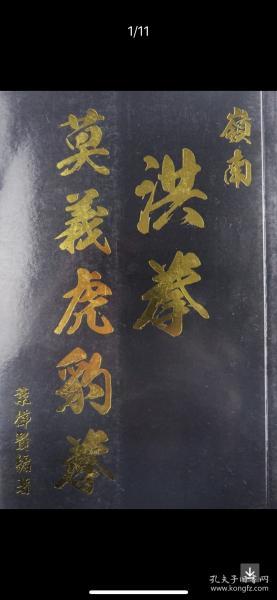 1/11
嶺南
洪拳
莫義虎豹拳
葉偉對編著
孔夫子旧书网
www.kongfz.com